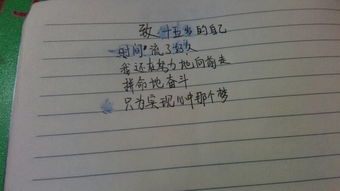 致 十五岁的自己
时间流了好久
我还在努力地向前走
拼命地奋斗
只为实现心中那个梦